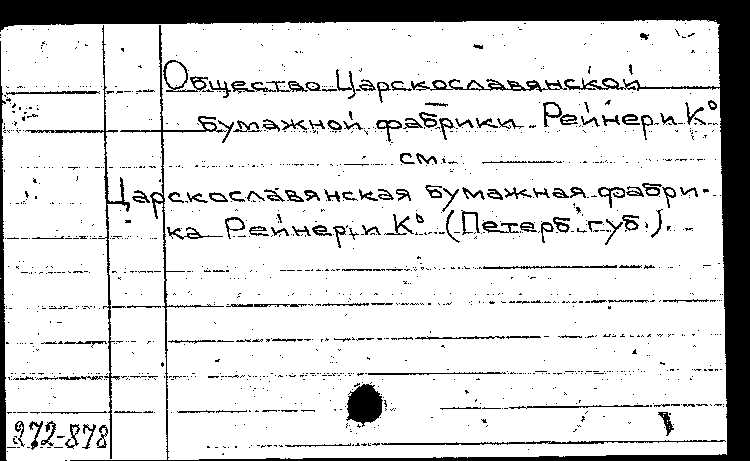 Общество Царскославянской
бумажной фабрики Рейнер и К°
см.
Царскославянская бумажная фабри-
ка Рейнер и К° (Петерб. губ.).
272-878